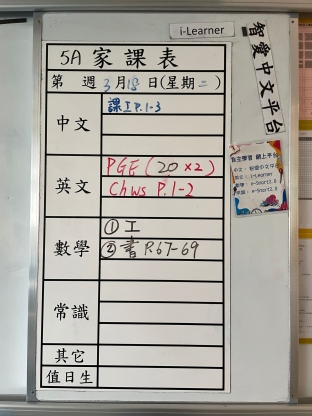 i-Learner
智愛中文平台
5A 家課表
第 週 3月18日(星期二)
中文
課工P.1-3
英文
PGE (20×2)
Chws P.1-2
數學
①工
②書 P.67-69
常識
其它
值日生
自主學習 網上平台